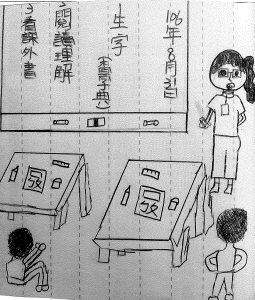 106年8月31日
生字
(查字典)
2,閱讀理解
3,看課外書